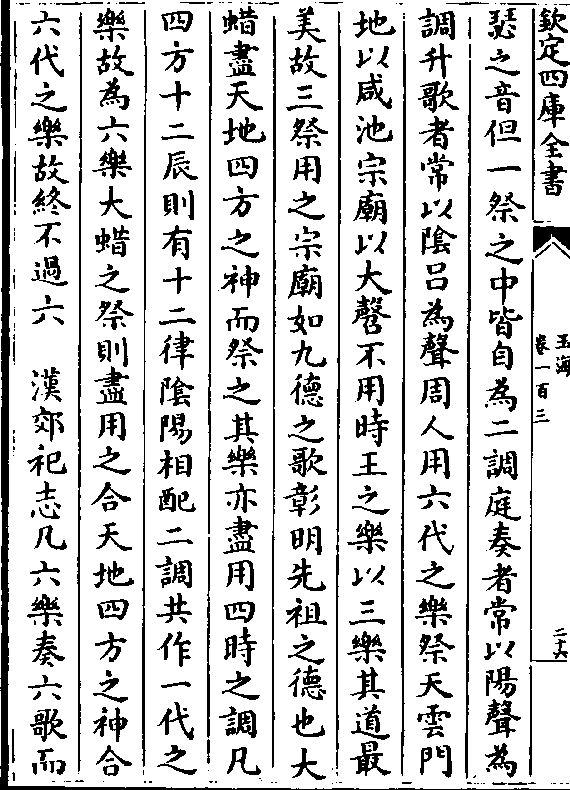 欽定四庫全書
玉海
卷一百三
二十六
瑟之音但一祭之中皆自為二調庭奏者常以陽聲為
調升歌者常以陰呂為聲周人用六代之樂祭天雲門
地以咸池宗廟以大㲈不用時王之樂以三樂其道最
美故三祭用之宗廟如九德之歌彰明先祖之德也大
蜡盡天地四方之神而祭之其樂亦盡用四時之調凡
四方十二辰則有十二律陰陽相配二調共作一代之
樂故為六樂大蜡之祭則盡用之合天地四方之神合
六代之樂故終不過六　漢郊祀志凡六樂奏六歌而